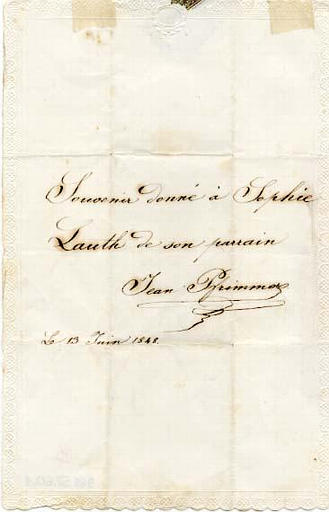 Souvenir donné à Sophie
Lauth de son parrain
Jean Pfrimmer
Le 13 Juin 1848.